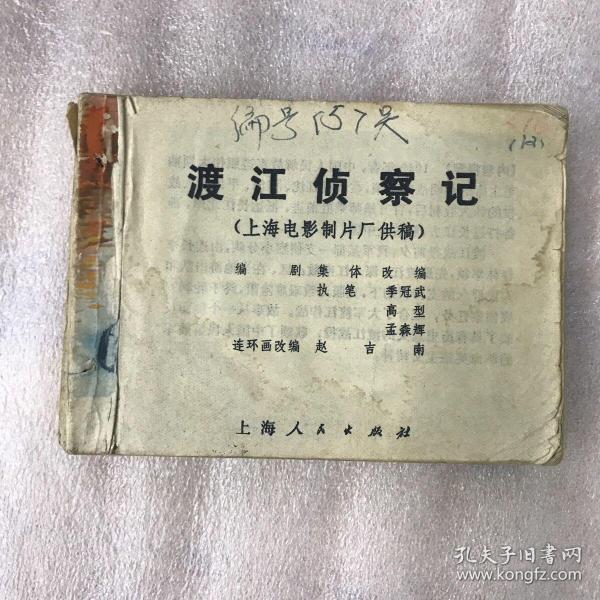 编号157吴
(12)
渡江侦察记
（上海电影制片厂供稿）
编剧集体改编
执笔 季冠武
高型
孟森辉
连环画改编 赵吉南
上海人民出版社
孔夫子旧书网
www.kongfz.com